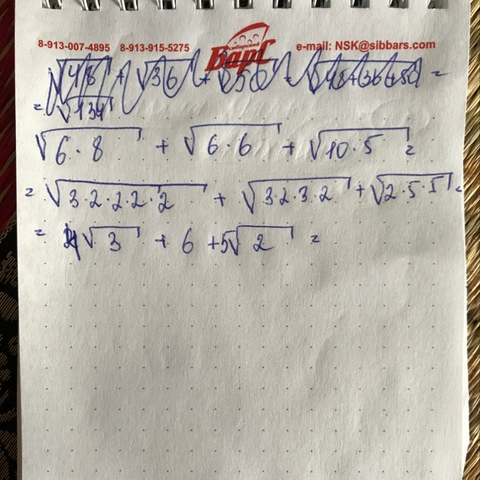 8-913-007-4895 8-913-915-5275 БарС e-mail: NSK@sibbars.com
√48 + √36 + √50 = √48+36+50 =
= √134
√6·8 + √6·6 + √10·5 =
= √3·2·2·2·2 + √3·2·3·2 + √2·5·5 =
= 4√3 + 6 + 5√2 =